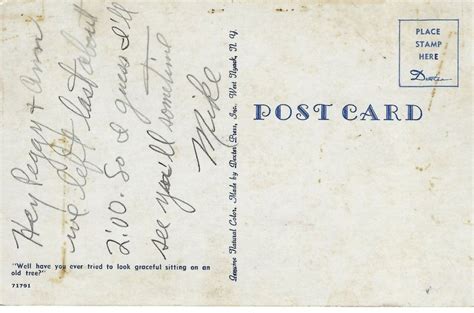 Hey Peggy & Ann
we left last about
2:00. So I guess I'll
see ya'll sometime
Mike
"Well have you ever tried to look graceful sitting on an
old tree?"
71791
Genuine Natural Color, Made by Dexter Press, Inc. West Nyack, N. Y.
POST CARD
PLACE
STAMP
HERE
Dexter